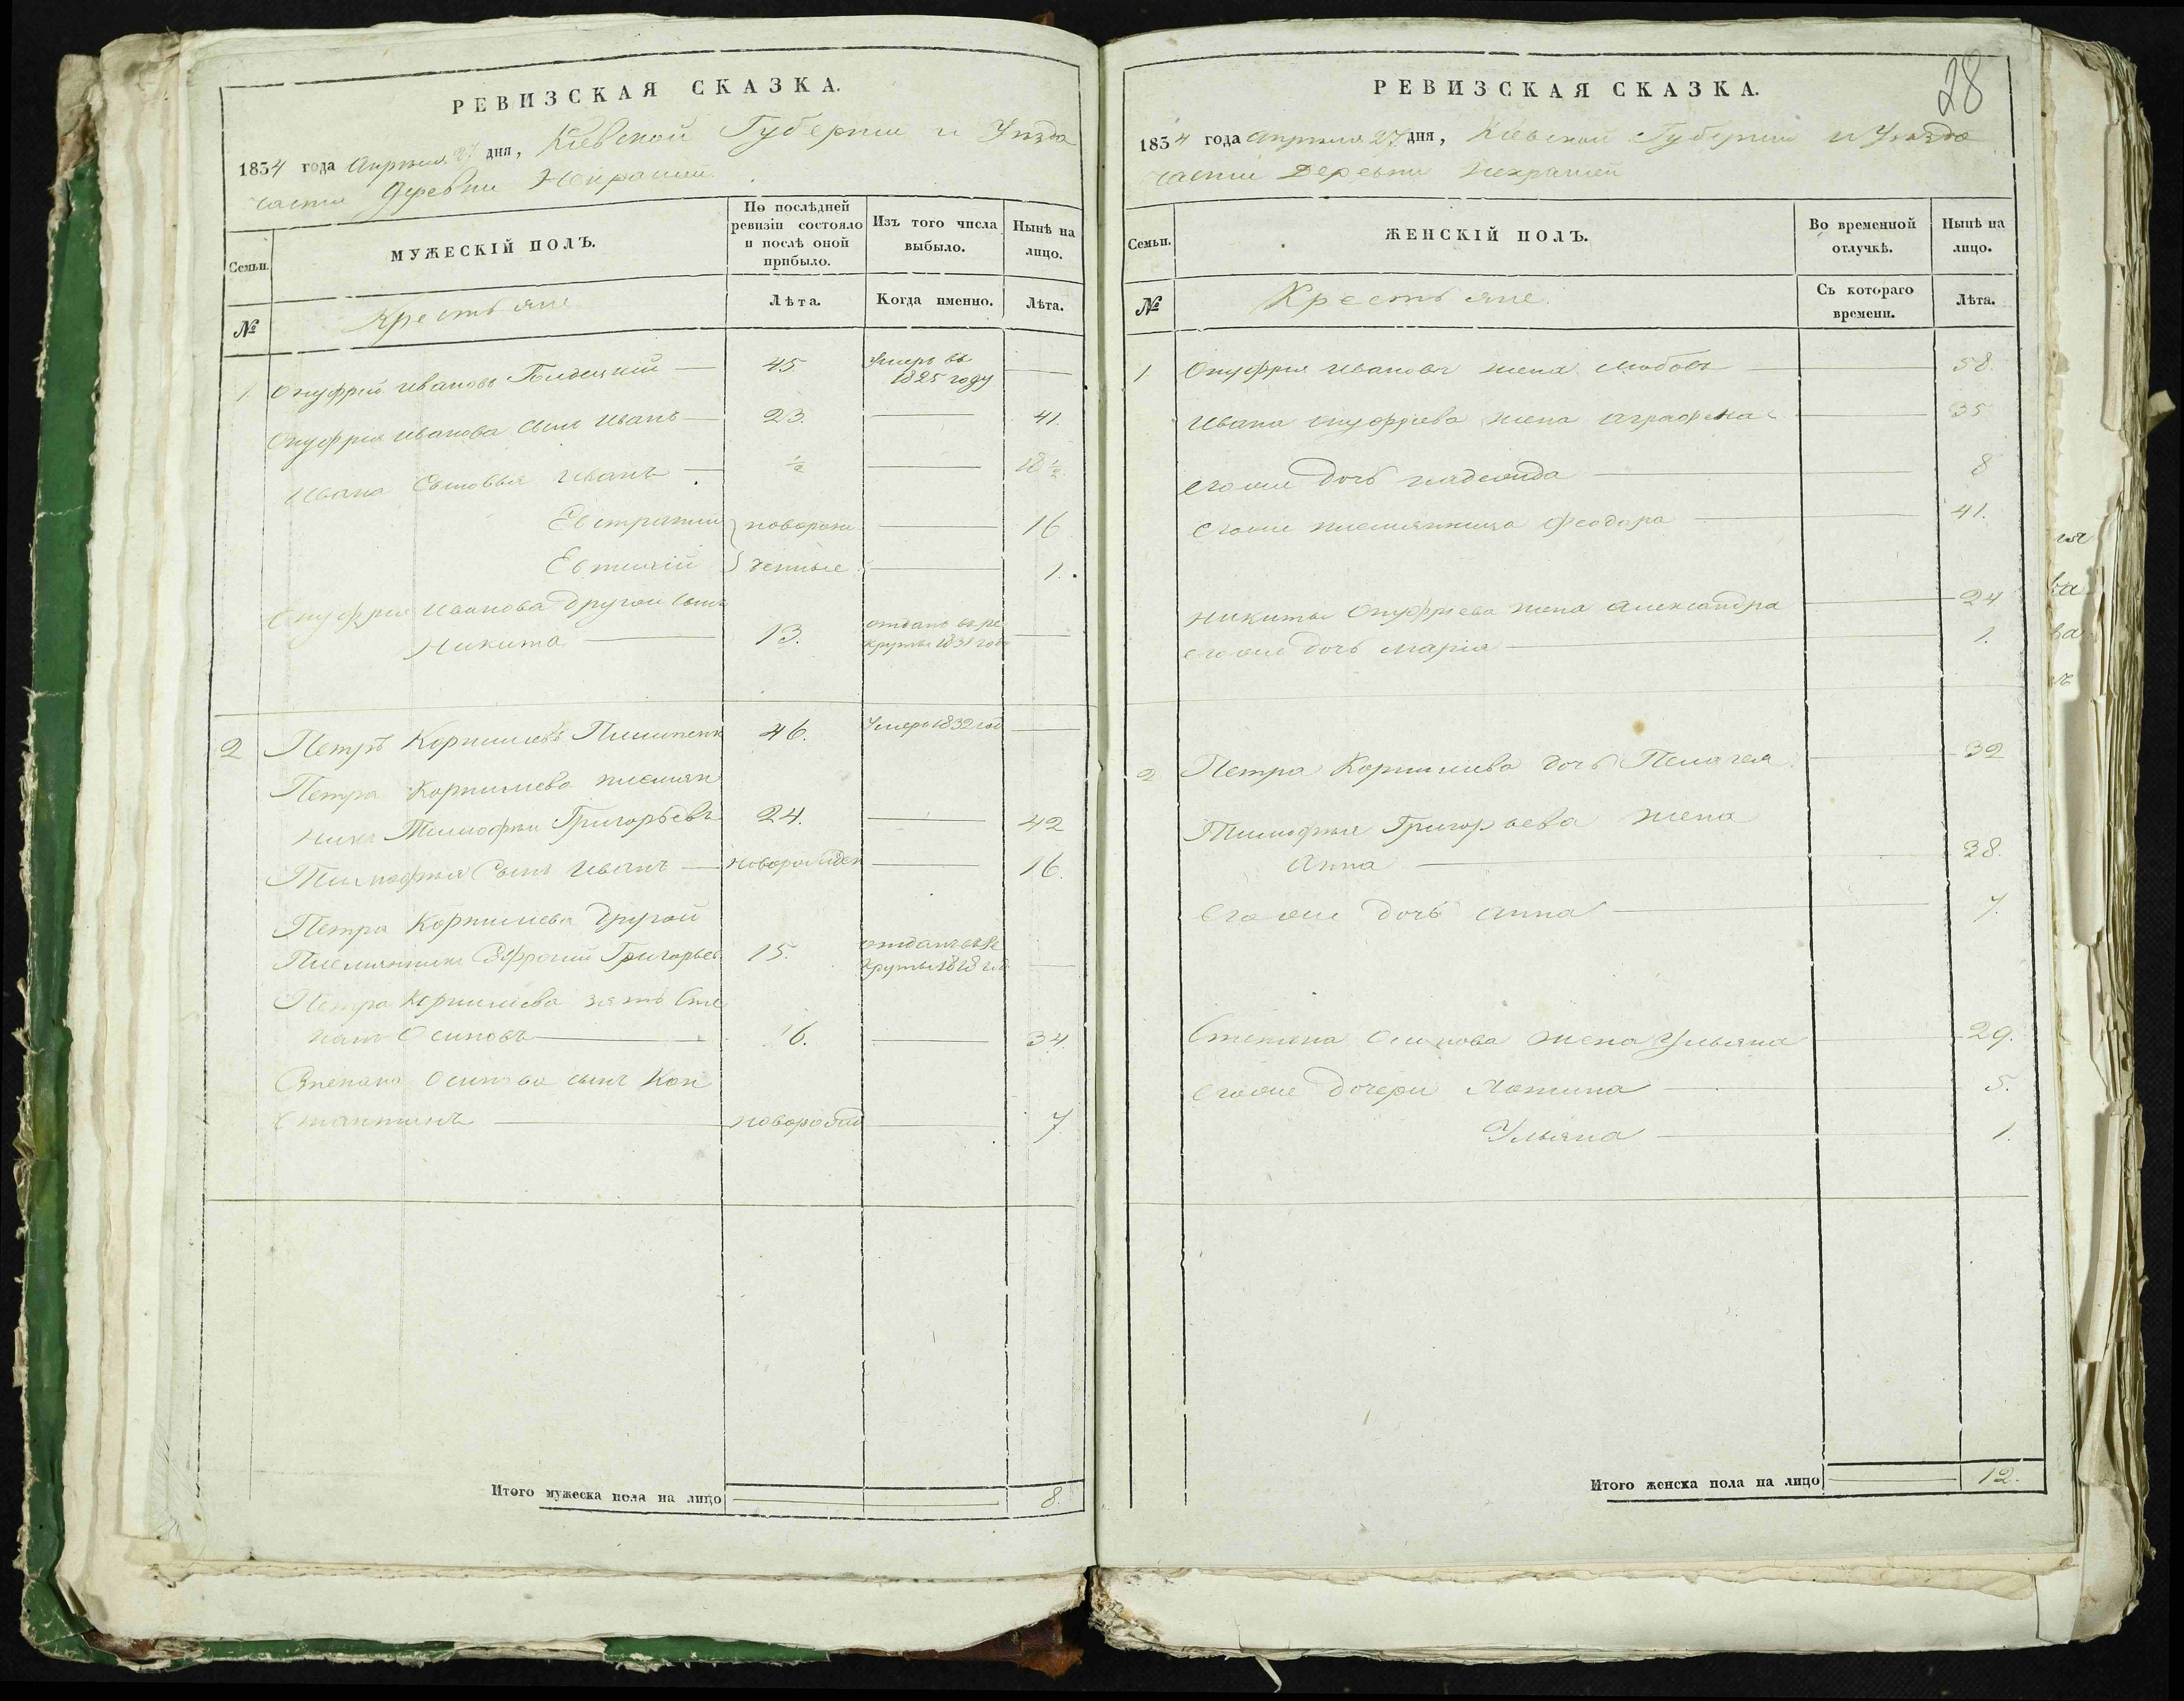 РЕВИЗСКАЯ СКАЗКА.
1834 года Апрѣля 27 дня, Кіевской Губерніи и Уѣзда
части Деревни
Семьи.
МУЖЕСКІЙ ПОЛЪ.
По послѣдней ревизіи состояло и послѣ оной прибыло.
Изъ того числа выбыло.
Нынѣ на лицо.
№
Крестьяне
Лѣта.
Когда именно.
Лѣта.
1 Онуфрій Ивановъ — 45 Умеръ въ 1825 году —
Онуфрія Иванова сынъ Иванъ — 23. — 41.
Ивана Сыновья Иванъ — ½ — 18½
Евстратій } новорож — 16
Евтихій } денные — 1.
Онуфрія Иванова другой сынъ
Никита — 13. отданъ въ ре
круты 1831 года —
2 Петръ Корнилiевъ 46. Умеръ 1832 год —
Петра Корнилiева племян
никъ Тимофей Григорьевъ 24. — 42
Тимофея Сынъ Иванъ — новорожден — 16.
Петра Корнилiева другой
Племянникъ Григорьев 15. отданъ въ ре
круты 1818 год —
Петра Корнилiева зять Сте
панъ Осиповъ — 16. — 34.
Степана Осипова сынъ Кон
стантинъ — новорожд — 7.
Итого мужеска пола на лицо — 8.
28
РЕВИЗСКАЯ СКАЗКА.
1834 года Апрѣля 27 дня, Кіевской Губерніи и Уѣзда
части Деревни
Семьи.
ЖЕНСКІЙ ПОЛЪ.
Во временной отлучкѣ.
Нынѣ на лицо.
№
Крестьяне.
Съ котораго времени.
Лѣта.
1 Онуфрія Иванова жена Любовь — 58.
Ивана Онуфріева жена Аграфена — 35
его же дочь надежда — 8
его же племянница Феодора — 41.
Никиты Онуфріева жена Александра — 24
его же дочь марія — 1.
2 Петра Корнилiева дочь Пелагея — 32
Тимофея Григорьева жена
Анна — 38.
его же дочь Анна — 7.
Степана Осипова жена Ульяна — 29.
его же дочери — 5.
Ульяна — 1.
Итого женска пола на лицо — 12.